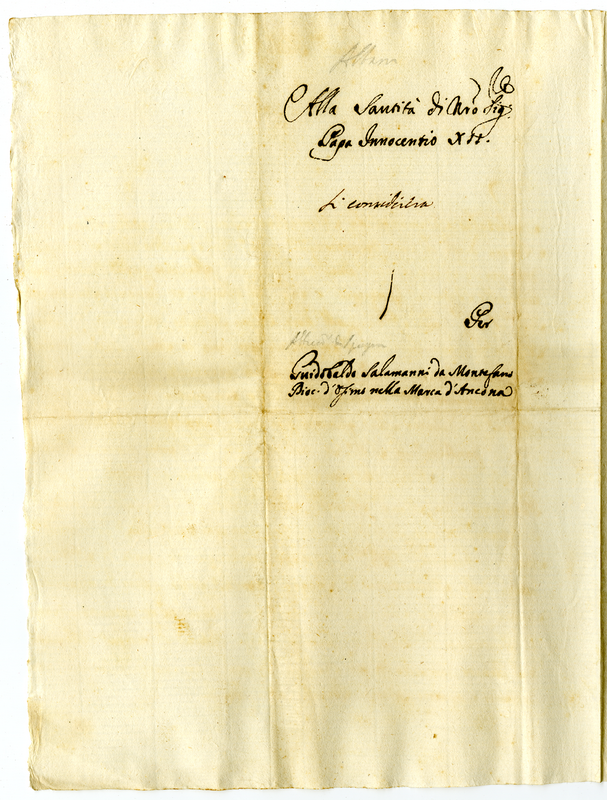 Alla Santità di Nro Sigre
Papa Innocentio XII.
Si considera
Per
Guidobaldo Salamanni da Montefano
Dioc. d'Osimo nella Marca d'Ancona